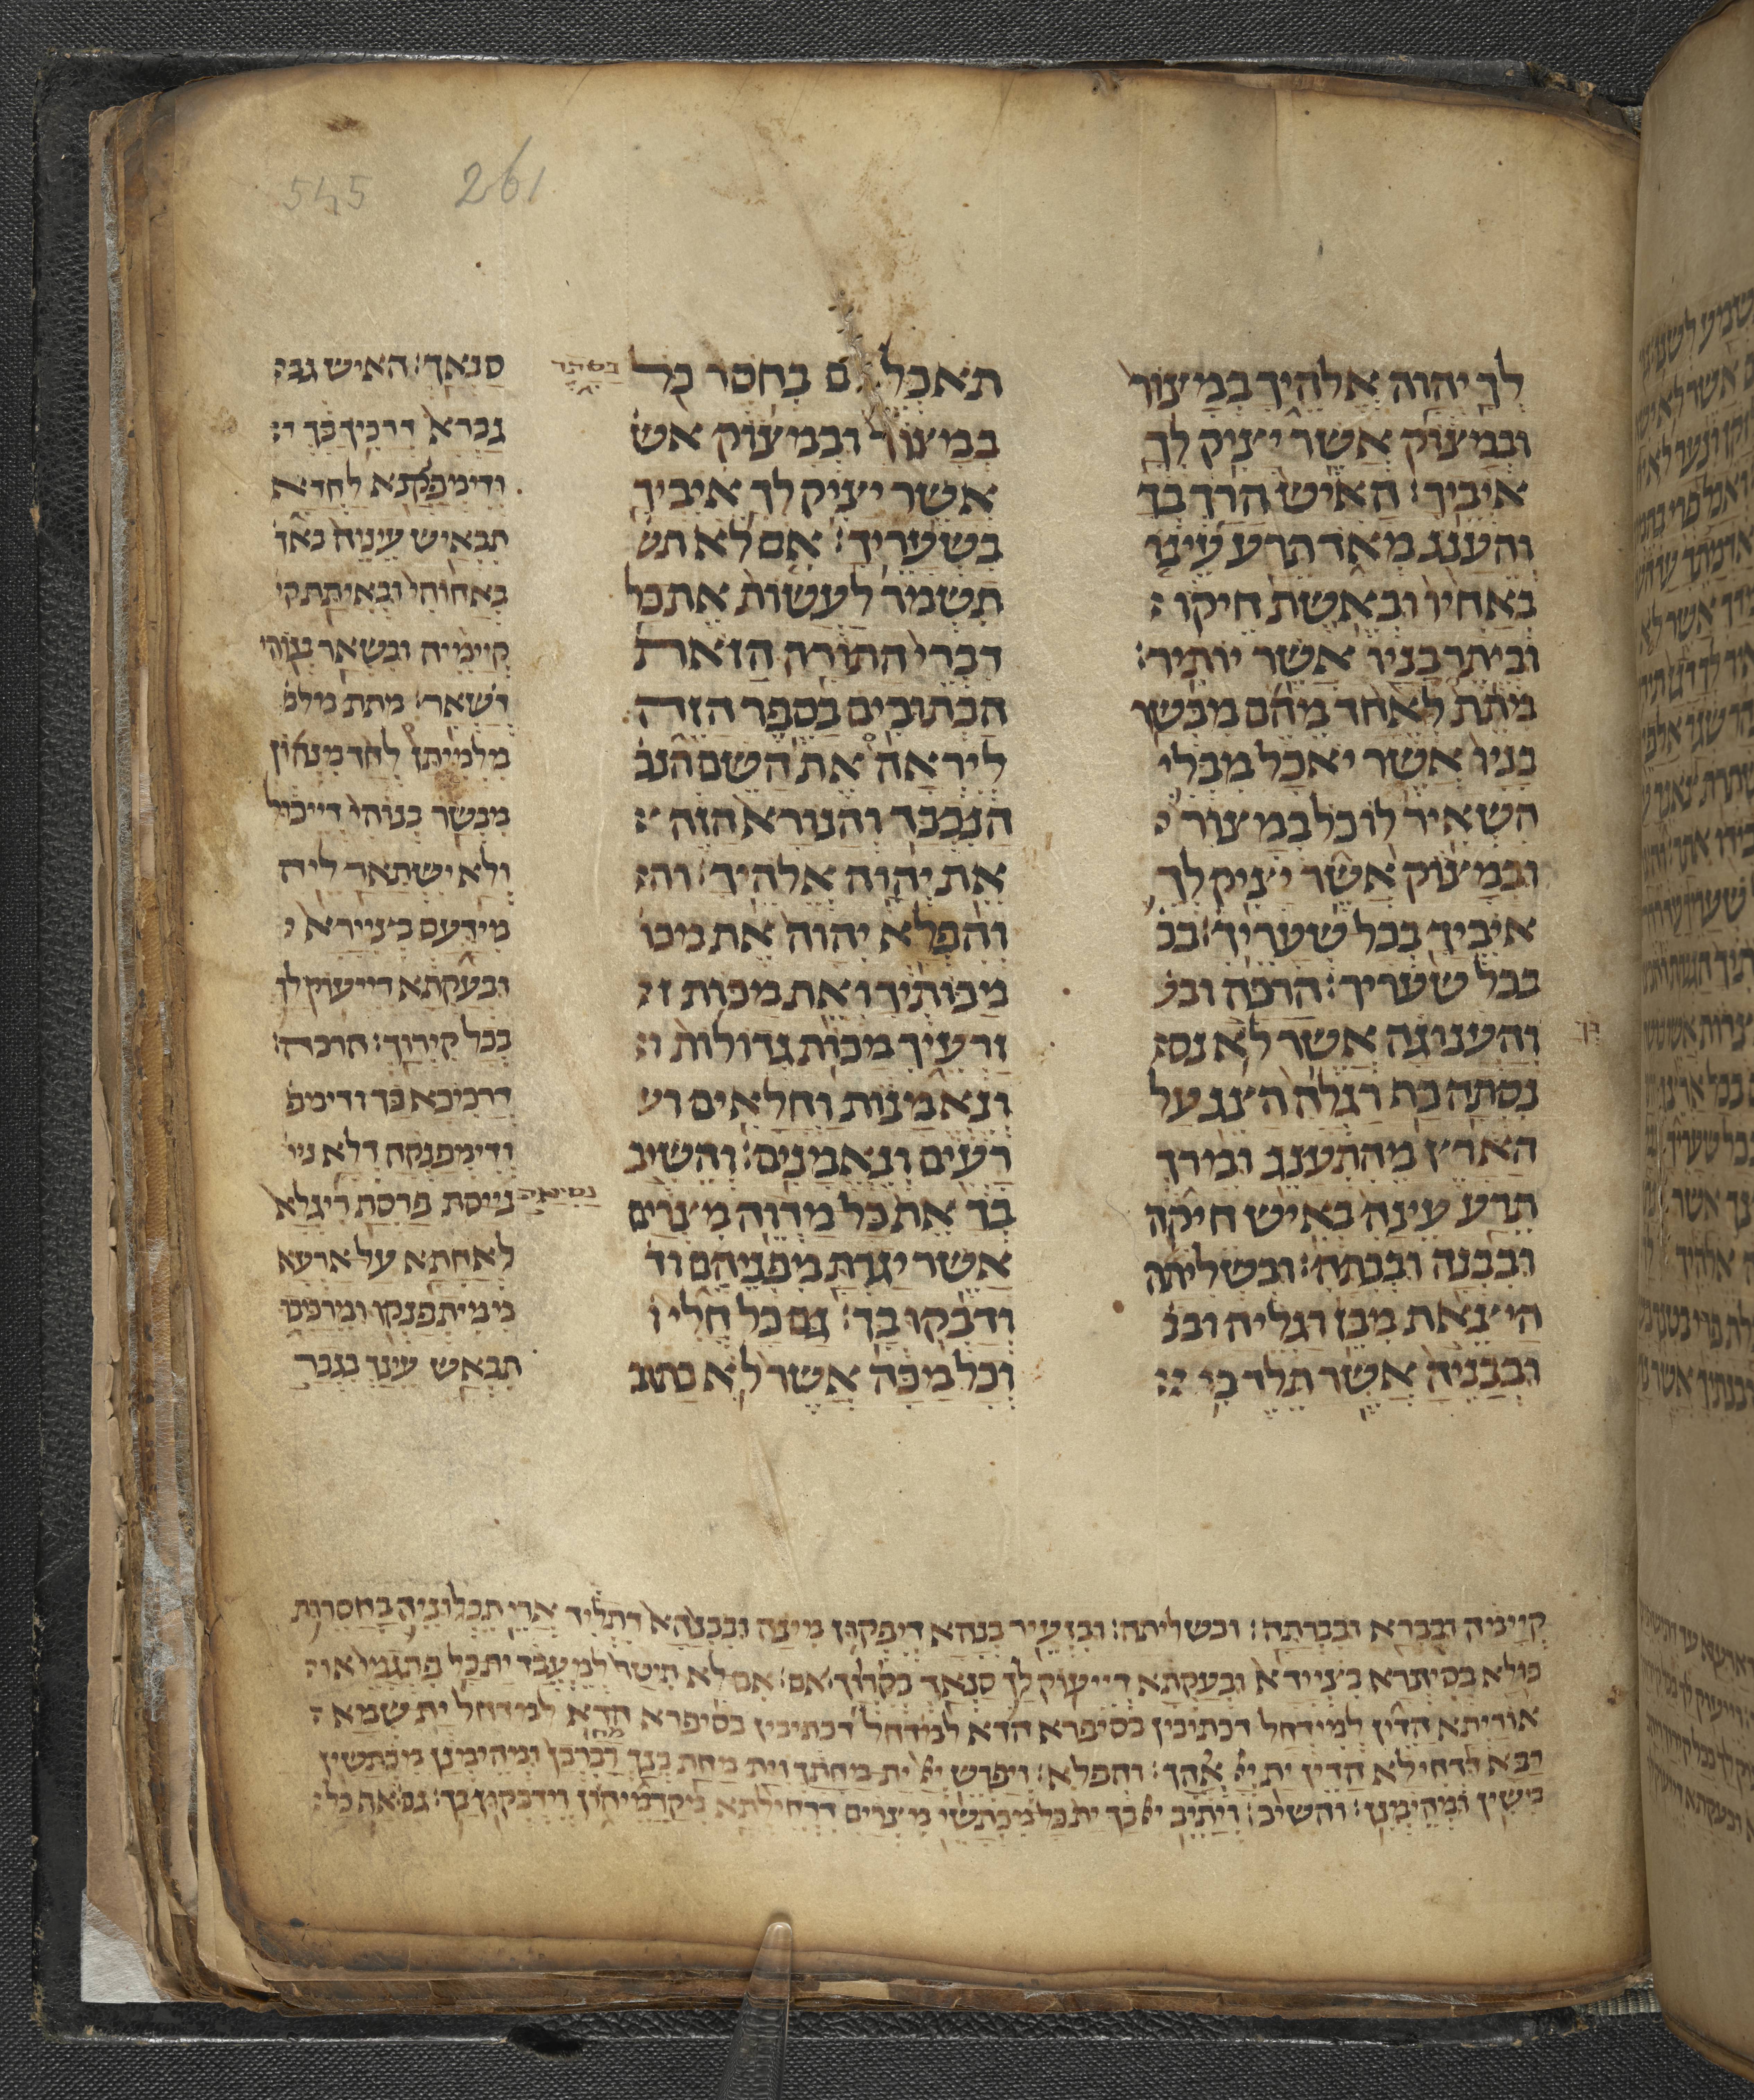 545 261
לך יהוה אלהיך במצור
ובמצוק אשר יציק לך
איביך: האיש הרך בך
והענג מאד תרע עינו
באחיו ובאשת חיקו
וביתר בניו אשר יותיר:
מתת לאחד מהם מבשר
בניו אשר יאכל מבלי
השאיר לו כל במצור
ובמצוק אשר יציק לך
איביך בכל שעריך: בכ
בכל שעריך: הרכה ובכ
והענוגה אשר לא נס
נסתה כף רגלה הצג על
הארץ מהתענג ומרך
תרע עינה באיש חיקה
ובבנה ובבתה: ובשליתה
היוצאת מבין רגליה ובב
ובבניה אשר תלד כי
תאכלם בחסר כל
במצור ובמצוק אש
אשר יציק לך איביך
בשעריך: אם לא תש
תשמר לעשות את כל
דברי התורה הזאת
הכתובים בספר הזה
ליראה את השם הנכ
הנכבד והנורא הזה
את יהוה אלהיך: וה
והפלא יהוה את מכו
מכותיך ואת מכות ז
זרעיך מכות גדולות ו
ונאמנות וחלאים רע
רעים ונאמנים: והשיב
בך את כל מדוה מצרים
אשר יגרת מפניהם וד
ודבקו בך: גם כל חלי ו
וכל מכה אשר לא כתוב
בסתר
סנאך: האיש גב
גברא דרכיך בך ו
ודימפנקא לחדא
תבאיש עיניה באח
באחוהי ובאיתת קי
קיימיה ובשאר בנוהי
דשאר: מתת מלמ
מלמיתן לחד מנהון
מבשר בנוהי דייכול
ולא ישתאר ליה
מידעם בציירא
ובעקתא דייעוק לך
בכל קירוך: הרכה
דרכיכא בך ודימפ
ודימפנקה דלא ני
נייסת פרסת ריגלא
לאחתא על ארעא
ממיתפנקו ומרכיכו
תבאש עינה בגבר
קיימה ובברא ובברתה: ובשליתה: ובזעיר בנהא דיפקון מינה ובבנהא דתליד ארי תכלוניה בחסרות
כולא בסיתרא בציירא ובעקתא דייעוק לך סנאך בקרוך: אם לא תיטר למעבד ית כל פתגמי או
אוריתא הדין למידחל דכתיבין בסיפרא הדא למידחל ית שמא
רבא ודחילא הדין ית ייי אלהך: והפלא: ויפרש ייי ית מחתך וית מחת בנך מחן רברבן ומהימנן מכתשין
בישין ומהימנין: והשיב: ויתיב ייי בך ית כל מכתשי מצרים דדחילתא מקדמיהון וידבקון בך: גם את כל